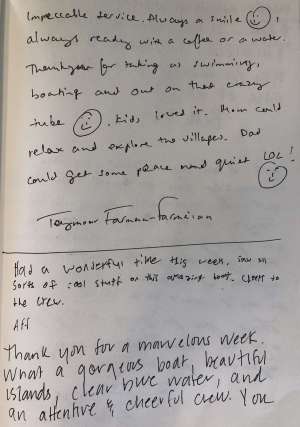 Impeccable service. Always a smile
always ready with a coffee or a water.
Thankyou for taking us swimming,
boating and out on that crazy
tube . Kids loved it. Mom could
relax and explore the villages. Dad
could get some peace and quiet LOL!
Farman-Farmaian
Had a wonderful time this week, saw all
sorts of cool stuff on this amazing boat. Cheers to
the crew.
Thank you for a marvelous week.
What a gorgeous boat, beautiful
islands, clear blue water, and
an attentive & cheerful crew. You